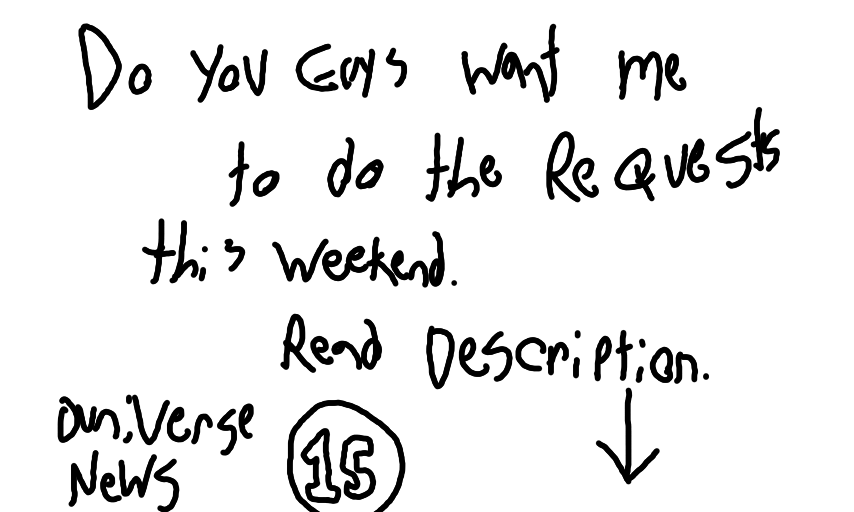 Do you Guys want me
to do the Requests
this weekend.
Read Description.
Ouniverse
News
15